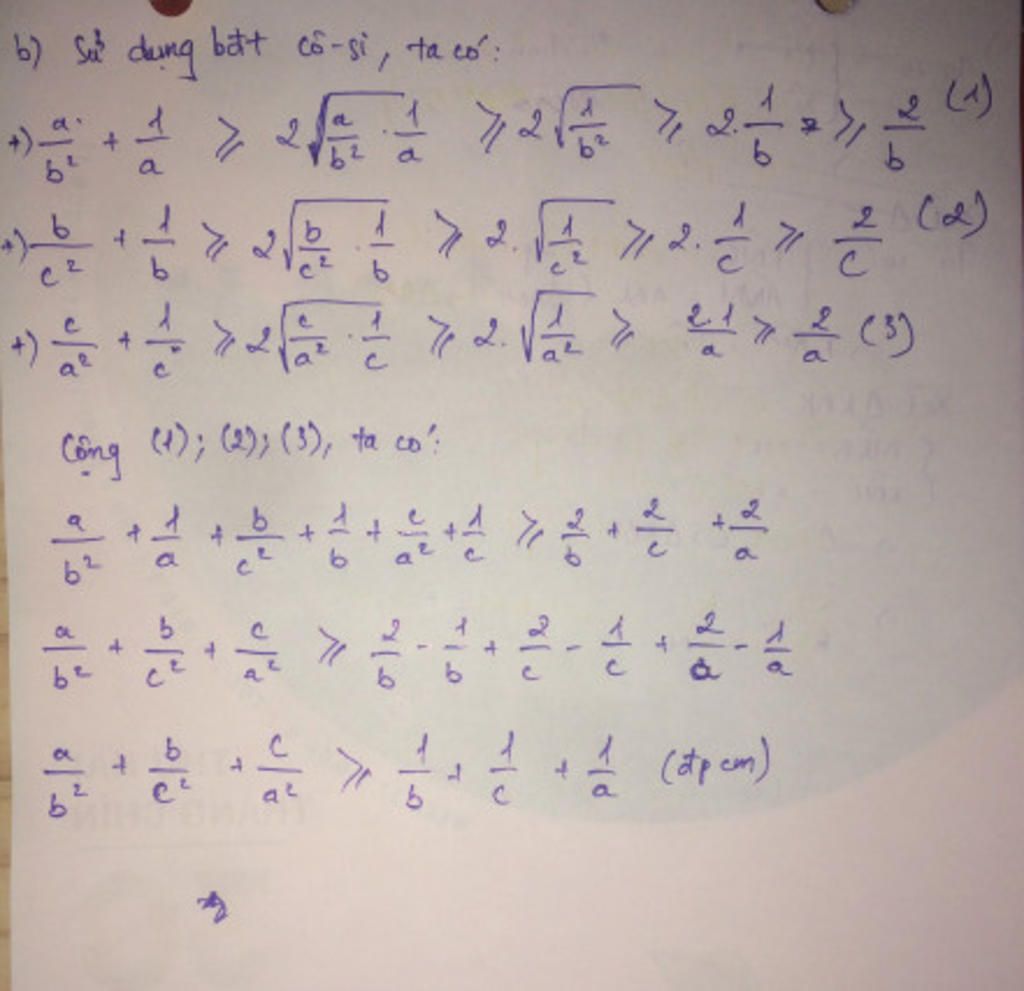 b) Sử dụng bđt cô-si, ta có:
+) a/b² + 1/a ≥ 2√(a/b² . 1/a) ≥ 2√(1/b²) ≥ 2.1/b ≥ 2/b (1)
+) b/c² + 1/b ≥ 2√(b/c² . 1/b) ≥ 2.√(1/c²) ≥ 2.1/c ≥ 2/c (2)
+) c/a² + 1/c ≥ 2√(c/a² . 1/c) ≥ 2.√(1/a²) ≥ 2.1/a ≥ 2/a (3)
Cộng (1); (2); (3), ta có:
a/b² + 1/a + b/c² + 1/b + c/a² + 1/c ≥ 2/b + 2/c + 2/a
a/b² + b/c² + c/a² ≥ 2/b - 1/b + 2/c - 1/c + 2/a - 1/a
a/b² + b/c² + c/a² ≥ 1/b + 1/c + 1/a (đpcm)